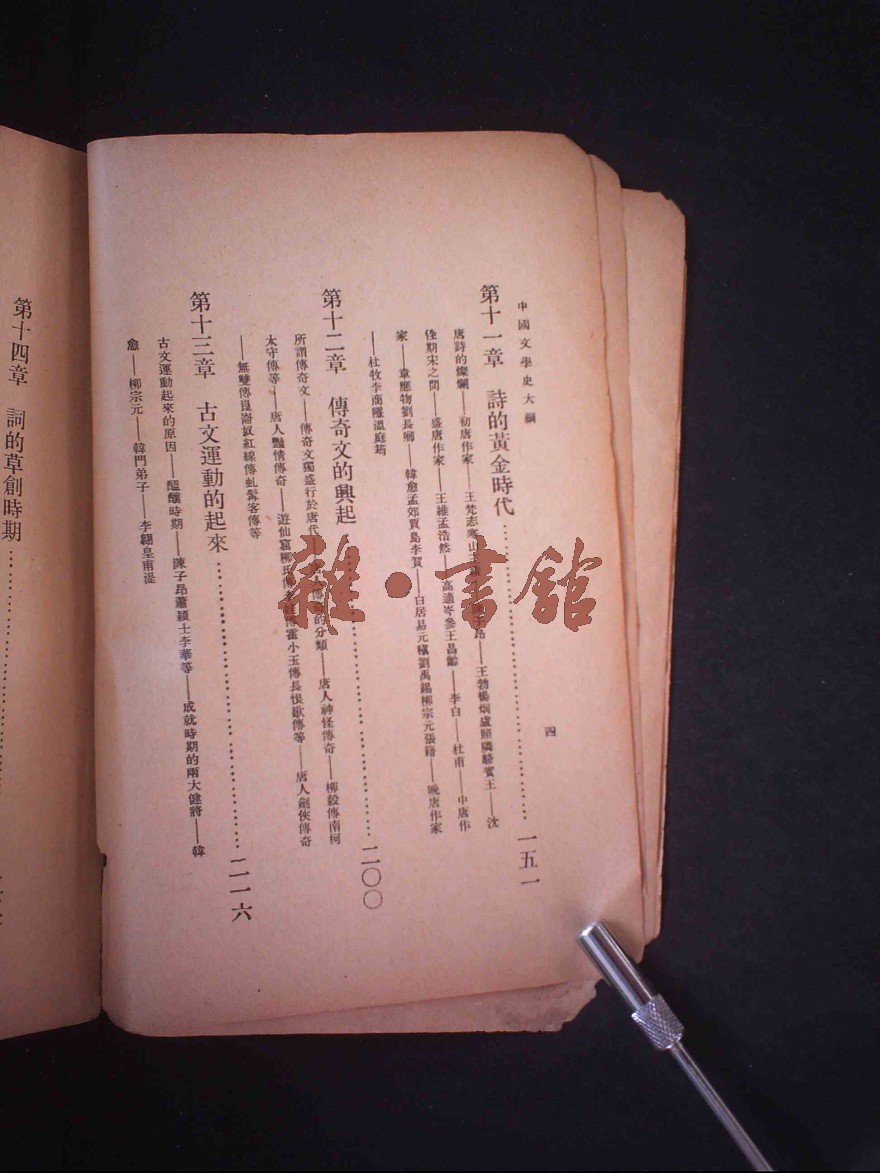 中國文學史大綱
四
第十一章 詩的黃金時代……一五一
唐詩的燦爛——初唐作家——王梵志寒山王——王勃楊炯盧照隣駱賓王——沈
佺期宋之問——盛唐作家——王維孟浩然——高適岑參王昌齡——李白——杜甫——中唐作
家——韋應物劉長卿——韓愈孟郊賈島李賀——白居易元稹劉禹錫柳宗元張籍——晚唐作家
——杜牧李商隱溫庭筠
第十二章 傳奇文的興起……二〇〇
所謂傳奇文——傳奇文獨盛行於唐代——的分類——唐人神怪傳奇——柳毅傳南柯
太守傳等——唐人豔情傳奇——遊仙窟柳氏傳霍小玉傳長恨歌傳等——唐人劍俠傳奇
——無雙傳崑崙奴紅線傳虬髯客傳等
第十三章 古文運動的起來……二一六
古文運動起來的原因——醞釀時期——陳子昂蕭穎士李華等——成就時期的兩大健將——韓
愈——柳宗元——韓門弟子——李翺皇甫湜
第十四章 詞的草創時期……
雜·書館